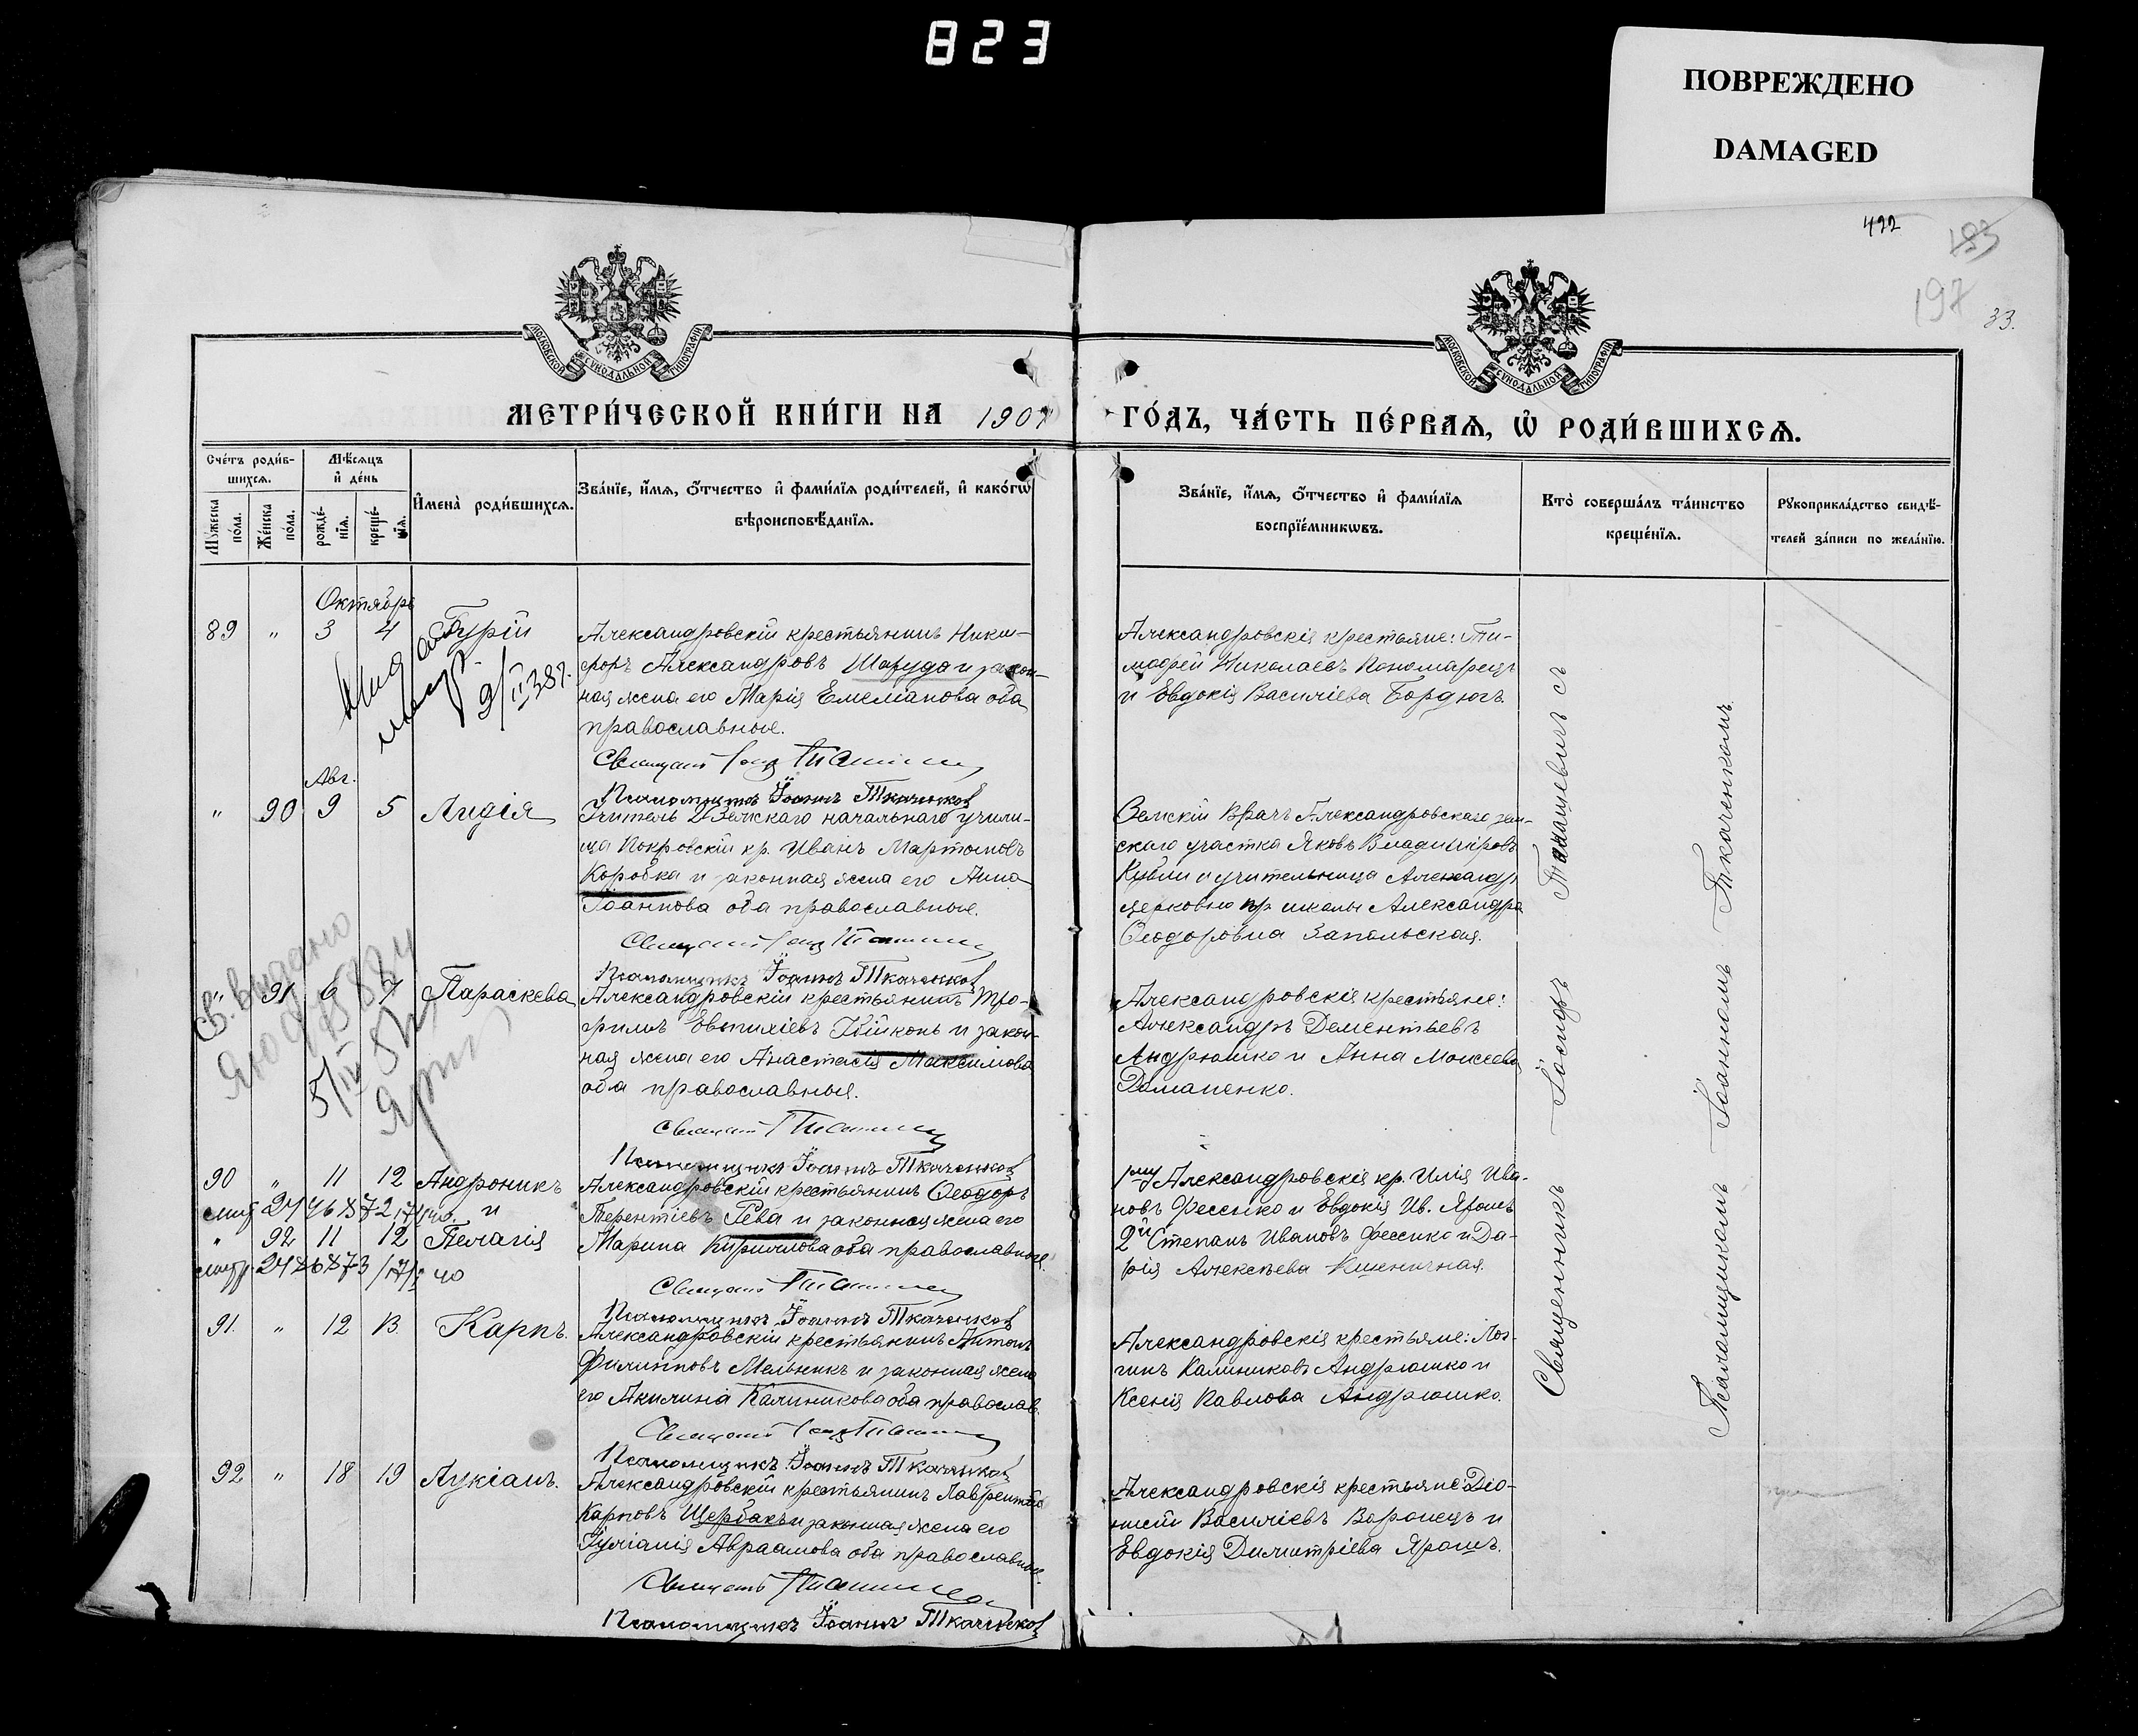 823
ПОВРЕЖДЕНО
DAMAGED
422
183
197
33.
МОСКОВСКОЙ СѴНОДАЛЬНОЙ ТИПОГРАФІИ
МОСКОВСКОЙ СѴНОДАЛЬНОЙ ТИПОГРАФІИ
МЕТРИ́ЧЕСКОЙ КНИ́ГИ НА 1907
ГО́ДЪ, ЧА́СТЬ ПЕ́РВАѦ, Ѡ҆ РОДИ́ВШИХСѦ.
Сче́тъ роди́в-
шихсѧ.
Мꙋ́жеска по́ла.
Же́нска по́ла.
Мѣ́сѧцъ
и҆ де́нь
рожде́-
нїѧ.
креще́-
нїѧ.
И҆мена̀ роди́вшихсѧ.
Зва́нїе, и҆́мѧ, ѻ҆́тчество и҆ фами́лїѧ роди́телей, и҆ како́гѡ
вѣроисповѣ́данїѧ.
Зва́нїе, и҆́мѧ, ѻ҆́тчество и҆ фами́лїѧ
воспрїе́мникѡвъ.
Кто̀ соверша́лъ та́инство
креще́нїѧ.
Рꙋкоприкла́дство свидѣ́-
телей за́писи по жела́нїю.
Октябрь
89 " 3 4 Гурій
Александровскій крестьянинъ Ники-
форъ Александровъ Шарудо и закон-
ная жена его Марія Емеліанова оба
православные.
Псаломщикъ Іоаннъ Ткаченков
Александровскія крестьяне: Ти-
мофей Николаевъ Пономарецъ
и Евдокія Василіева Бордюгъ.
9/II 38 г.
Авг.
" 90 9 5 Лидія
Учитель 2 Земскаго начальнаго учили-
ща Покровскій кр. Иванъ Мартыновъ
Коробка и законная жена его Анна
Іоаннова оба православные.
Псаломщикъ Іоаннъ Ткаченков
Земскій Врачъ Александровскаго зем-
скаго участка Яковъ Владиміровъ
и учительница Александр
церковно пр. школы Александра
Ѳеодоровна Запольская.
Св. выдано
" 91 6 7 Параскева
Александровскій крестьянинъ Тро-
фимъ Евтихіевъ и закон-
ная жена его Анастасія Максимова
оба православныя.
Псаломщикъ Іоаннъ Ткаченков
Александровскія крестьяне:
Александръ Дементьевъ
Андрюшко и Анна Моисеева
Доманенко.
90 " 11 12 Андроникъ
и
" 92 11 12 Пелагія
Александровскій крестьянинъ Ѳеодоръ
Терентіевъ Рева и законная жена его
Марина Кириллова оба православные.
Псаломщикъ Іоаннъ Ткаченков
1му Александровскія кр. Илія Ива-
новъ Фесенко и Евдокія Ив. Ярошъ
2й Степанъ Ивановъ Фесенко и Да-
рія Алексѣева Пшеничная.
91. " 12 13 Карпъ.
Александровскій крестьянинъ Антонъ
Филипповъ Мельникъ и законная жена
его Акилина Калиникова оба православ.
Псаломщикъ Іоаннъ Ткаченков
Александровскія крестьяне: Лон-
гинъ Калиниковъ Андрюшко и
Ксенія Павлова Андрюшко.
92 " 18 19 Лукіанъ.
Александровскій крестьянинъ Лаврентій
Карповъ Щербакъ и законная жена его
Іуліанія Авраамова оба православные.
Псаломщикъ Іоаннъ Ткаченков
Александровскія крестьяне: Діо-
нисій Василіевъ Воронецъ и
Евдокія Димитріева Ярошъ.
Священникъ Іосифъ съ
Псаломщикомъ Іоанномъ Ткаченкомъ